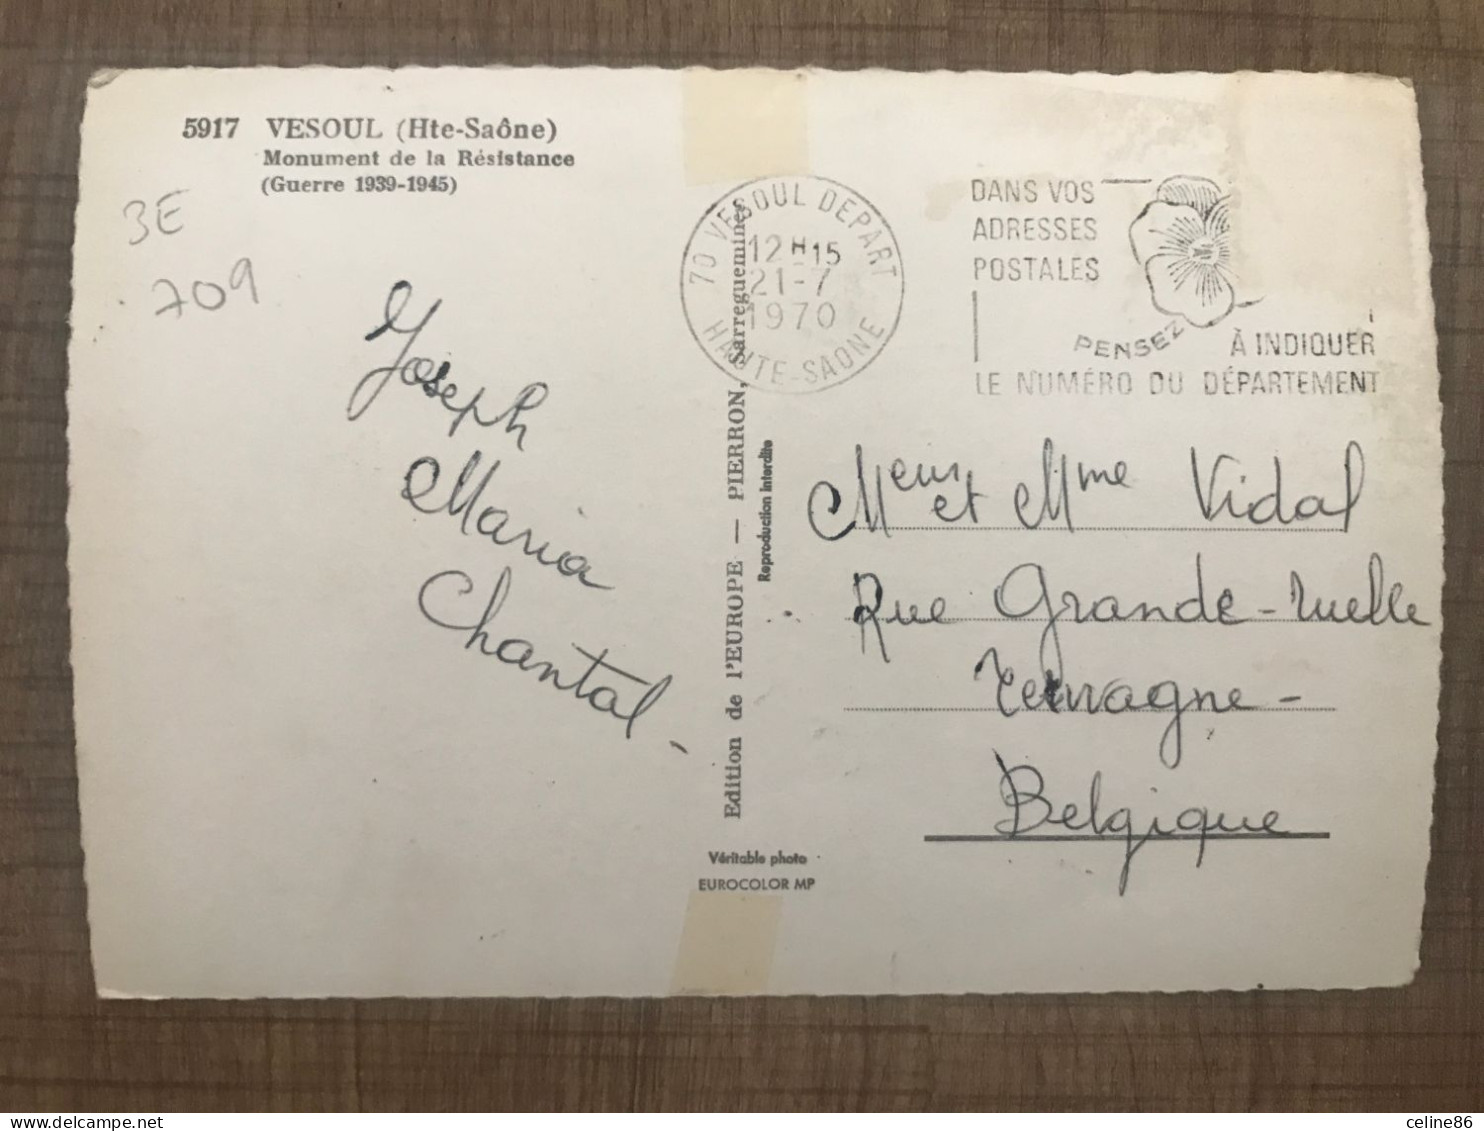 5917 VESOUL (Hte-Saône)
Monument de la Résistance
(Guerre 1939-1945)
3E
709
Joseph
Maria
Chantal -
Edition de l'EUROPE — PIERRON, Sarreguemines
Reproduction interdite
Véritable photo
EUROCOLOR MP
70 VESOUL DEPART
12H15
21-7
1970
HAUTE-SAONE
DANS VOS
ADRESSES
POSTALES
PENSEZ
À INDIQUER
LE NUMÉRO DU DÉPARTEMENT
Meur et Mme Vidal
Rue Grande-ruelle
Tervagne -
Belgique
www.delcampe.net
celine86